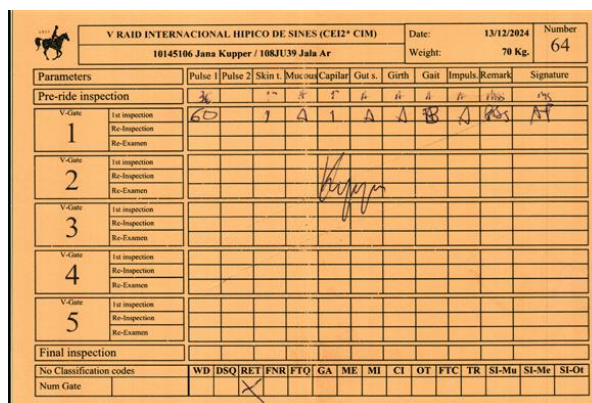 V RAID INTERNACIONAL HIPICO DE SINES (CEI2* CIM) Date: 13/12/2024 Number
10145106 Jana Kupper / 108JU39 Jala Ar Weight: 70 Kg. 64
Parameters Pulse 1 Pulse 2 Skin t. Mucous Capilar Gut s. Girth Gait Impuls. Remark Signature
Pre-ride inspection
V-Gate 1 1st inspection 60 1 A 1 A A A
Re-Inspection
Re-Examen
V-Gate 2 1st inspection
Re-Inspection
Re-Examen
V-Gate 3 1st inspection
Re-Inspection
Re-Examen
V-Gate 4 1st inspection
Re-Inspection
Re-Examen
V-Gate 5 1st inspection
Re-Inspection
Re-Examen
Final inspection
No Classification codes WD DSQ RET FNR FTQ GA ME MI CI OT FTC TR SI-Mu SI-Me SI-Ot
Num Gate X